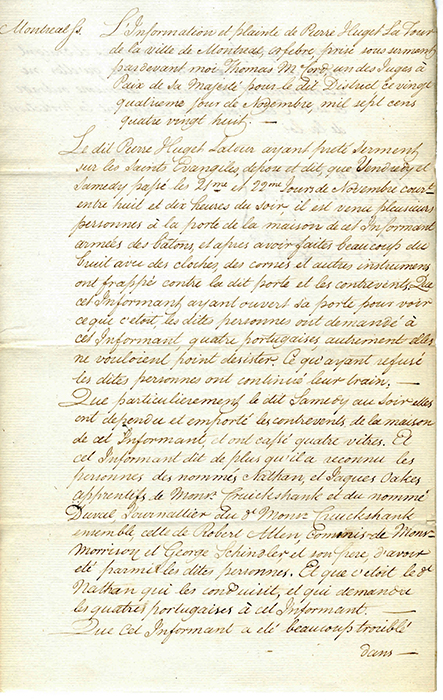 Montreal ss. L'Information et plainte de Pierre Huget La Tour
de la ville de Montreal, orfebre prise sous serment,
pardevant moi Thomas McCord un des Juges à
Paix de sa Majesté pour le dit District Ce vingt
quatrieme Jour de Novembre, mil sept cens
quatre vingt huit. —
Le dit Pierre Huget Latour ayant preté serment
sur les Saints Evangiles, depose et dit, que Vendredy et
Samedy passé les 21me et 22me Jour de Novembre cour.t
entre huit et dix heures du Soir il est venu plusieurs
personnes à la porte de la maison de cet Informant
armées des batons, et apres avoir faites beaucoup du
bruit avec des cloches, des cornes et autres instrumens
ont frappés contre la dit porte et les contrevents. Que
cet Informant, ayant ouvert sa porte pour voir
ce que c'etoit, les dites personnes ont demandé à
cet Informant quatre portugaises autrement elles
ne vouloient point desister. Ce qu'ayant refusé
les dites personnes ont continué leur train, —
Que particulierement le dit Samedy au Soir elles
ont dependu et emporté les contrevents de la maison
de cet Informant, et ont cassé quatre vitres. Et
cet Informant dit de plus qu'il a reconnu les
personnes des nommés Nathan, et Jaques Oakes
apprentifs de Monr. Cruickshank et du nommé
Duval Journallier du dt Monsr Cruickshank
ensemble celle de Robert Allen, Commis de Monsr
Morrison et George Schindler et son pere d'avoir
eté parmi les dites personnes. Et que c'etoit le dt
Nathan qui les conduisit, et qui demanda
les quatres portugaises à cet Informant. —
Que Cet Informant a eté beaucoup troublé
dans —